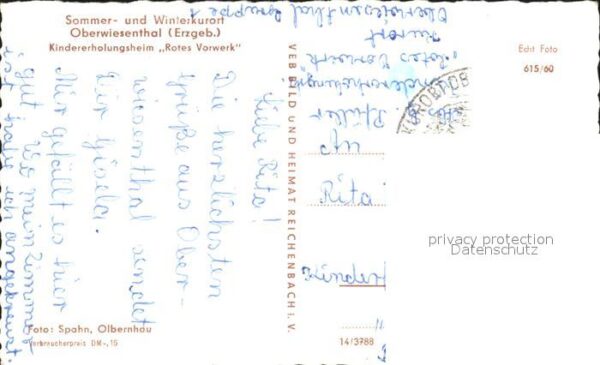 Sommer- und Winterkurort
Oberwiesenthal (Erzgeb.)
Kindererholungsheim „Rotes Vorwerk"
Liebe Rita!
Die herzlichsten
Grüße aus Ober-
wiesenthal sendet
Dir Gisela.
Mir gefällt es hier
gut. Wo mein Zimmer
ist habe ich angekreuzt.
Foto: Spahn, Olbernhau
Verbraucherpreis DM -,15
VEB BILD UND HEIMAT REICHENBACH i. V.
Oberwiesenthal Gruppe 1
Kurort
"Rotes Vorwerk"
Kindererholungsheim
Echt Foto
615/60
An
Rita
privacy protection
Datenschutz
14/3788